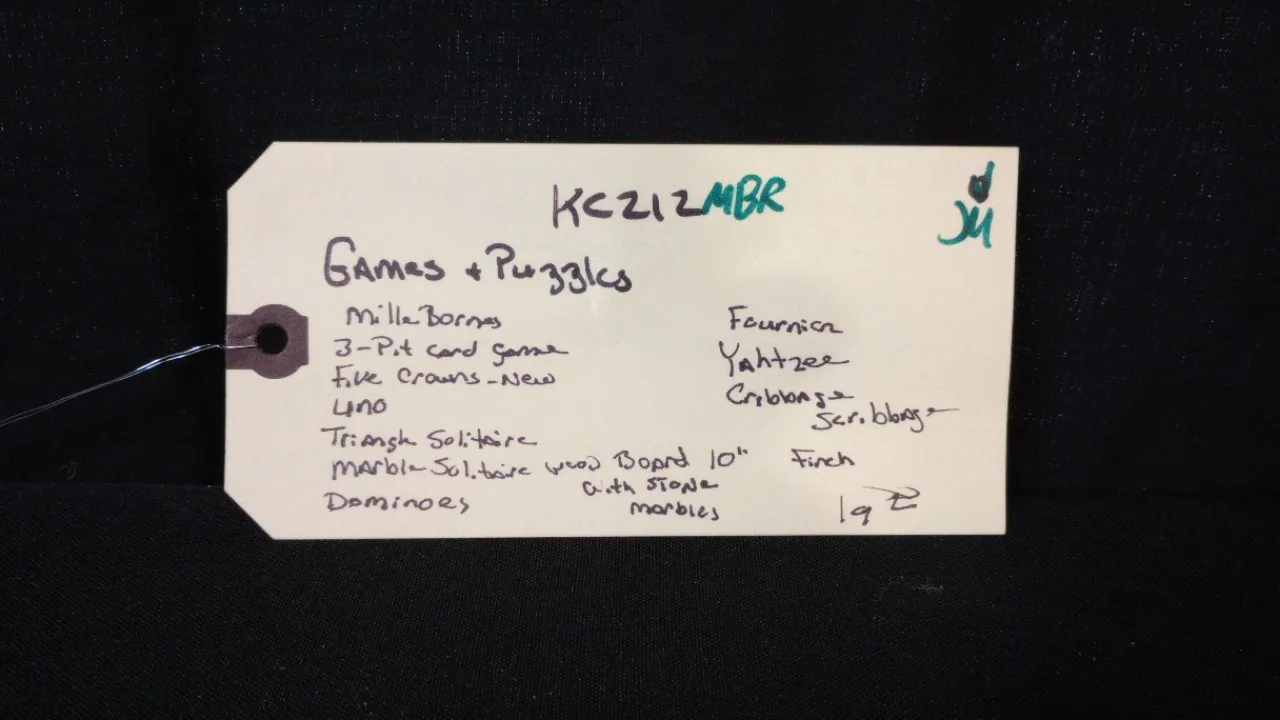 KC212MBR
JM
Games + Puzzles
Mille Bornes
3-Pit card game
Five Crowns - New
uno
Triangle Solitaire
Marble Solitaire wood Board 10"
with stone
marbles
Dominoes
Fournier
Yahtzee
Cribbage
Scribbage
Finch